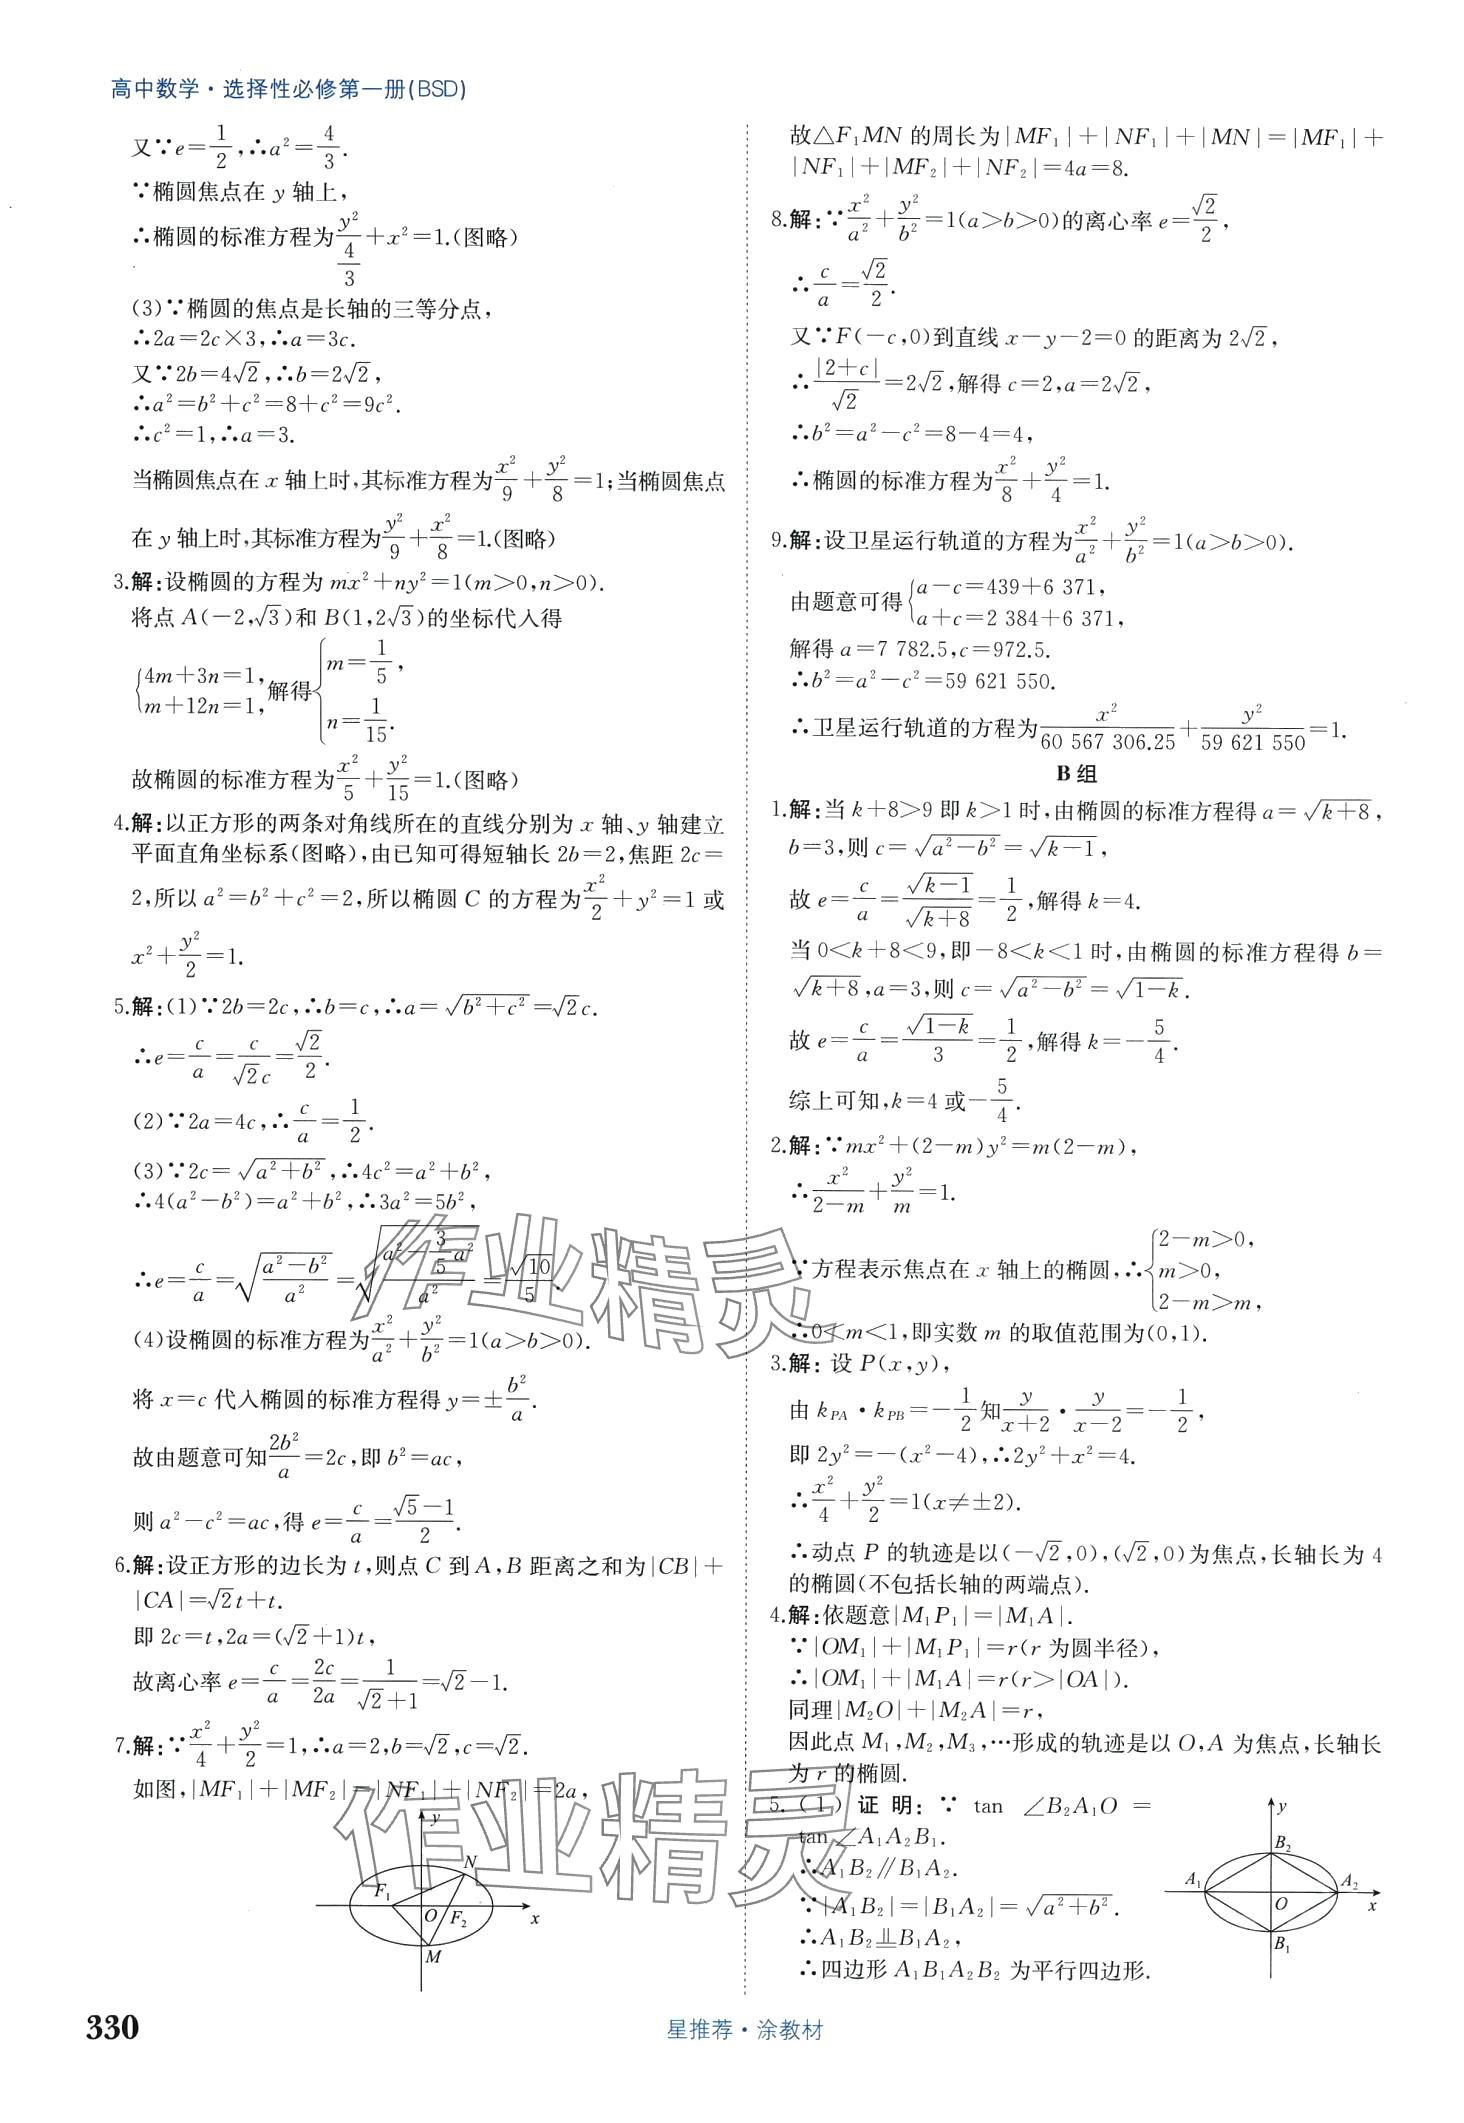 高中数学·选择性必修第一册(BSD)
又∵e=1/2,∴a²=4/3.
∵椭圆焦点在 y 轴上,
∴椭圆的标准方程为y²/(4/3)+x²=1.(图略)
(3)∵椭圆的焦点是长轴的三等分点,
∴2a=2c×3,∴a=3c.
又∵2b=4√2,∴b=2√2,
∴a²=b²+c²=8+c²=9c².
∴c²=1,∴a=3.
当椭圆焦点在 x 轴上时,其标准方程为x²/9+y²/8=1;当椭圆焦点
在 y 轴上时,其标准方程为y²/9+x²/8=1.(图略)
3.解:设椭圆的方程为 mx²+ny²=1(m>0,n>0).
将点 A(-2,√3)和 B(1,2√3)的坐标代入得
{4m+3n=1, m+12n=1,解得{m=1/5, n=1/15.
故椭圆的标准方程为x²/5+y²/15=1.(图略)
4.解:以正方形的两条对角线所在的直线分别为 x 轴、y 轴建立
平面直角坐标系(图略),由已知可得短轴长 2b=2,焦距 2c=
2,所以 a²=b²+c²=2,所以椭圆 C 的方程为x²/2+y²=1 或
x²+y²/2=1.
5.解:(1)∵2b=2c,∴b=c,∴a=√(b²+c²)=√2c.
∴e=c/a=c/(√2c)=√2/2.
(2)∵2a=4c,∴c/a=1/2.
(3)∵2c=√(a²+b²),∴4c²=a²+b²,
∴4(a²-b²)=a²+b²,∴3a²=5b²,
∴e=c/a=√((a²-b²)/a²)=√((a²-3/5a²)/a²)=√10/5.
(4)设椭圆的标准方程为x²/a²+y²/b²=1(a>b>0).
将 x=c 代入椭圆的标准方程得 y=±b²/a.
故由题意可知2b²/a=2c,即 b²=ac,
则 a²-c²=ac,得 e=c/a=(√5-1)/2.
6.解:设正方形的边长为 t,则点 C 到 A,B 距离之和为|CB|+
|CA|=√2t+t.
即 2c=t,2a=(√2+1)t,
故离心率 e=c/a=2c/2a=1/(√2+1)=√2-1.
7.解:∵x²/4+y²/2=1,∴a=2,b=√2,c=√2.
如图,|MF₁|+|MF₂|=|NF₁|+|NF₂|=2a,
y
N
F₁
O
F₂
x
M
故△F₁MN 的周长为|MF₁|+|NF₁|+|MN|=|MF₁|+
|NF₁|+|MF₂|+|NF₂|=4a=8.
8.解:∵x²/a²+y²/b²=1(a>b>0)的离心率 e=√2/2,
∴c/a=√2/2.
又∵F(-c,0)到直线 x-y-2=0 的距离为 2√2,
∴|2+c|/√2=2√2,解得 c=2,a=2√2,
∴b²=a²-c²=8-4=4,
∴椭圆的标准方程为x²/8+y²/4=1.
9.解:设卫星运行轨道的方程为x²/a²+y²/b²=1(a>b>0).
由题意可得{a-c=439+6 371, a+c=2 384+6 371,
解得 a=7 782.5,c=972.5.
∴b²=a²-c²=59 621 550.
∴卫星运行轨道的方程为x²/60 567 306.25+y²/59 621 550=1.
B 组
1.解:当 k+8>9 即 k>1 时,由椭圆的标准方程得 a=√(k+8),
b=3,则 c=√(a²-b²)=√(k-1),
故 e=c/a=√(k-1)/√(k+8)=1/2,解得 k=4.
当 0<k+8<9,即-8<k<1 时,由椭圆的标准方程得 b=
√(k+8),a=3,则 c=√(a²-b²)=√(1-k).
故 e=c/a=√(1-k)/3=1/2,解得 k=-5/4.
综上可知,k=4 或-5/4.
2.解:∵mx²+(2-m)y²=m(2-m),
∴x²/(2-m)+y²/m=1.
∵方程表示焦点在 x 轴上的椭圆,∴{2-m>0, m>0, 2-m>m,
∴0<m<1,即实数 m 的取值范围为(0,1).
3.解: 设 P(x,y),
由 k_PA·k_PB=-1/2知y/(x+2)·y/(x-2)=-1/2,
即 2y²=-(x²-4),∴2y²+x²=4.
∴x²/4+y²/2=1(x≠±2).
∴动点 P 的轨迹是以(-√2,0),(√2,0)为焦点,长轴长为 4
的椭圆(不包括长轴的两端点).
4.解:依题意|M₁P₁|=|M₁A|.
∵|OM₁|+|M₁P₁|=r(r 为圆半径),
∴|OM₁|+|M₁A|=r(r>|OA|).
同理|M₂O|+|M₂A|=r,
因此点 M₁,M₂,M₃,…形成的轨迹是以 O,A 为焦点,长轴长
为 r 的椭圆.
5.(1)证明:∵tan ∠B₂A₁O=
tan∠A₁A₂B₁.
∴A₁B₂∥B₁A₂.
∵|A₁B₂|=|B₁A₂|=√(a²+b²).
∴A₁B₂⫫B₁A₂,
∴四边形 A₁B₁A₂B₂ 为平行四边形.
y
B₂
A₁
A₂
O
x
B₁
作业精灵
作业精灵
330
星推荐·涂教材